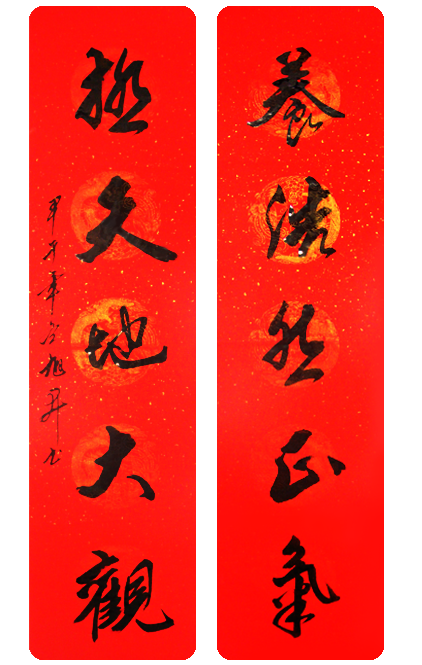 養浩然正氣
極天地大觀
甲午年 旭昇书